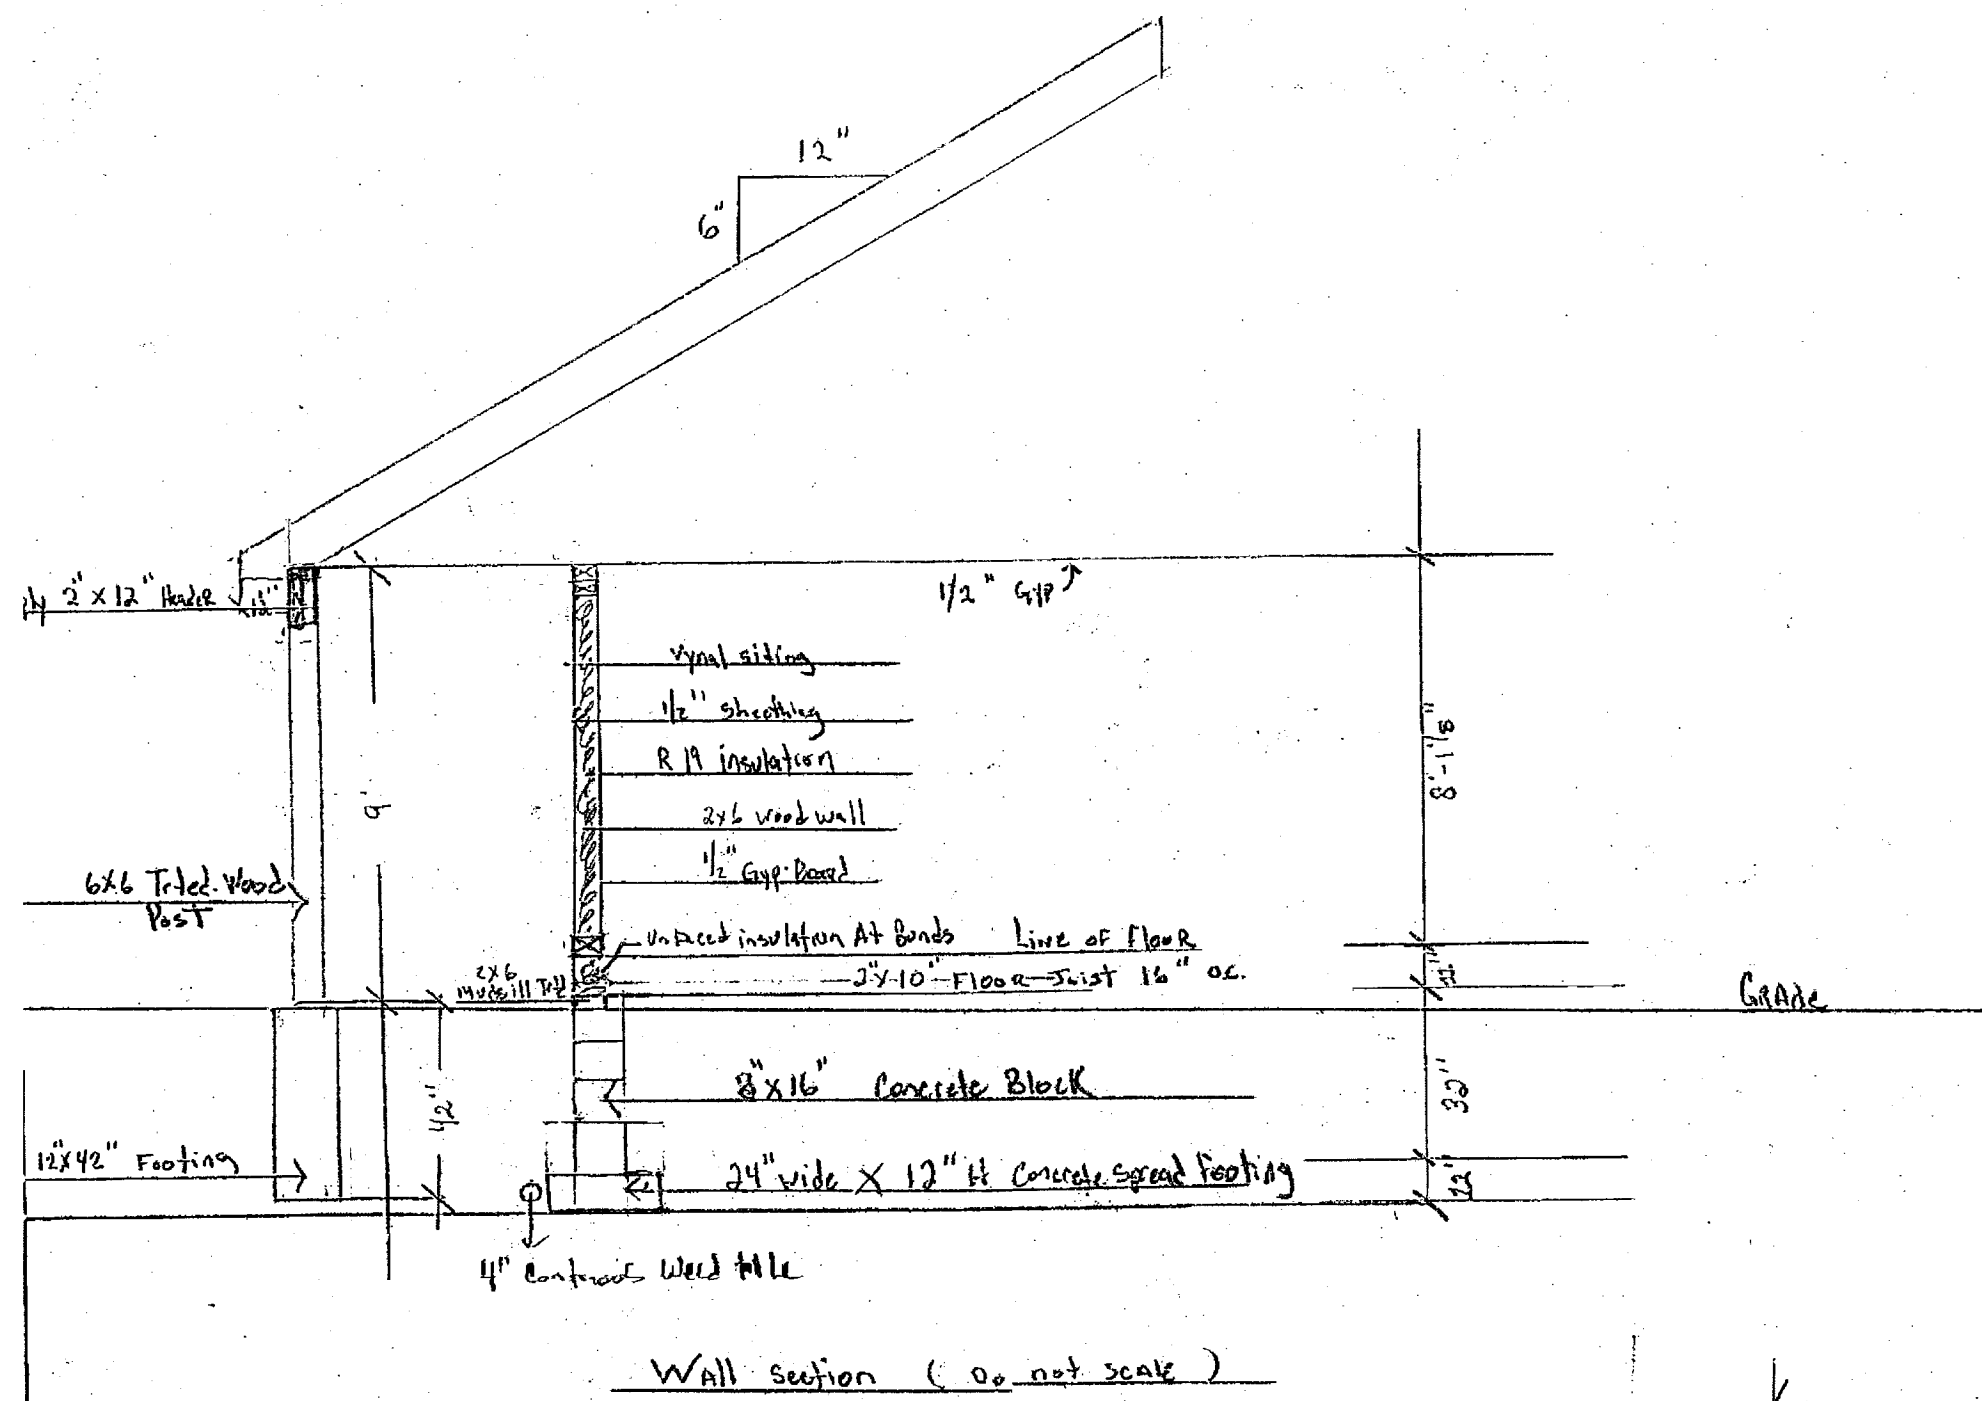 12"
6"
2" x 12" Header
12"
1/2" Gyp
vynal siding
1/2" sheathing
R 19 insulation
2x6 wood wall
1/2" Gyp. Board
9'
8'-1 1/8"
6x6 Trted. Wood
Post
Unfaced insulation At Bonds
Line of Floor
2x6
Mudsill Trtd
2"x10" Floor Joist 16" o.c.
Grade
42"
8"x16" Concrete Block
12"x42" Footing
24" wide x 12" H Concrete spread footing
12"
4" Continuous
Wall section ( Do not scale )